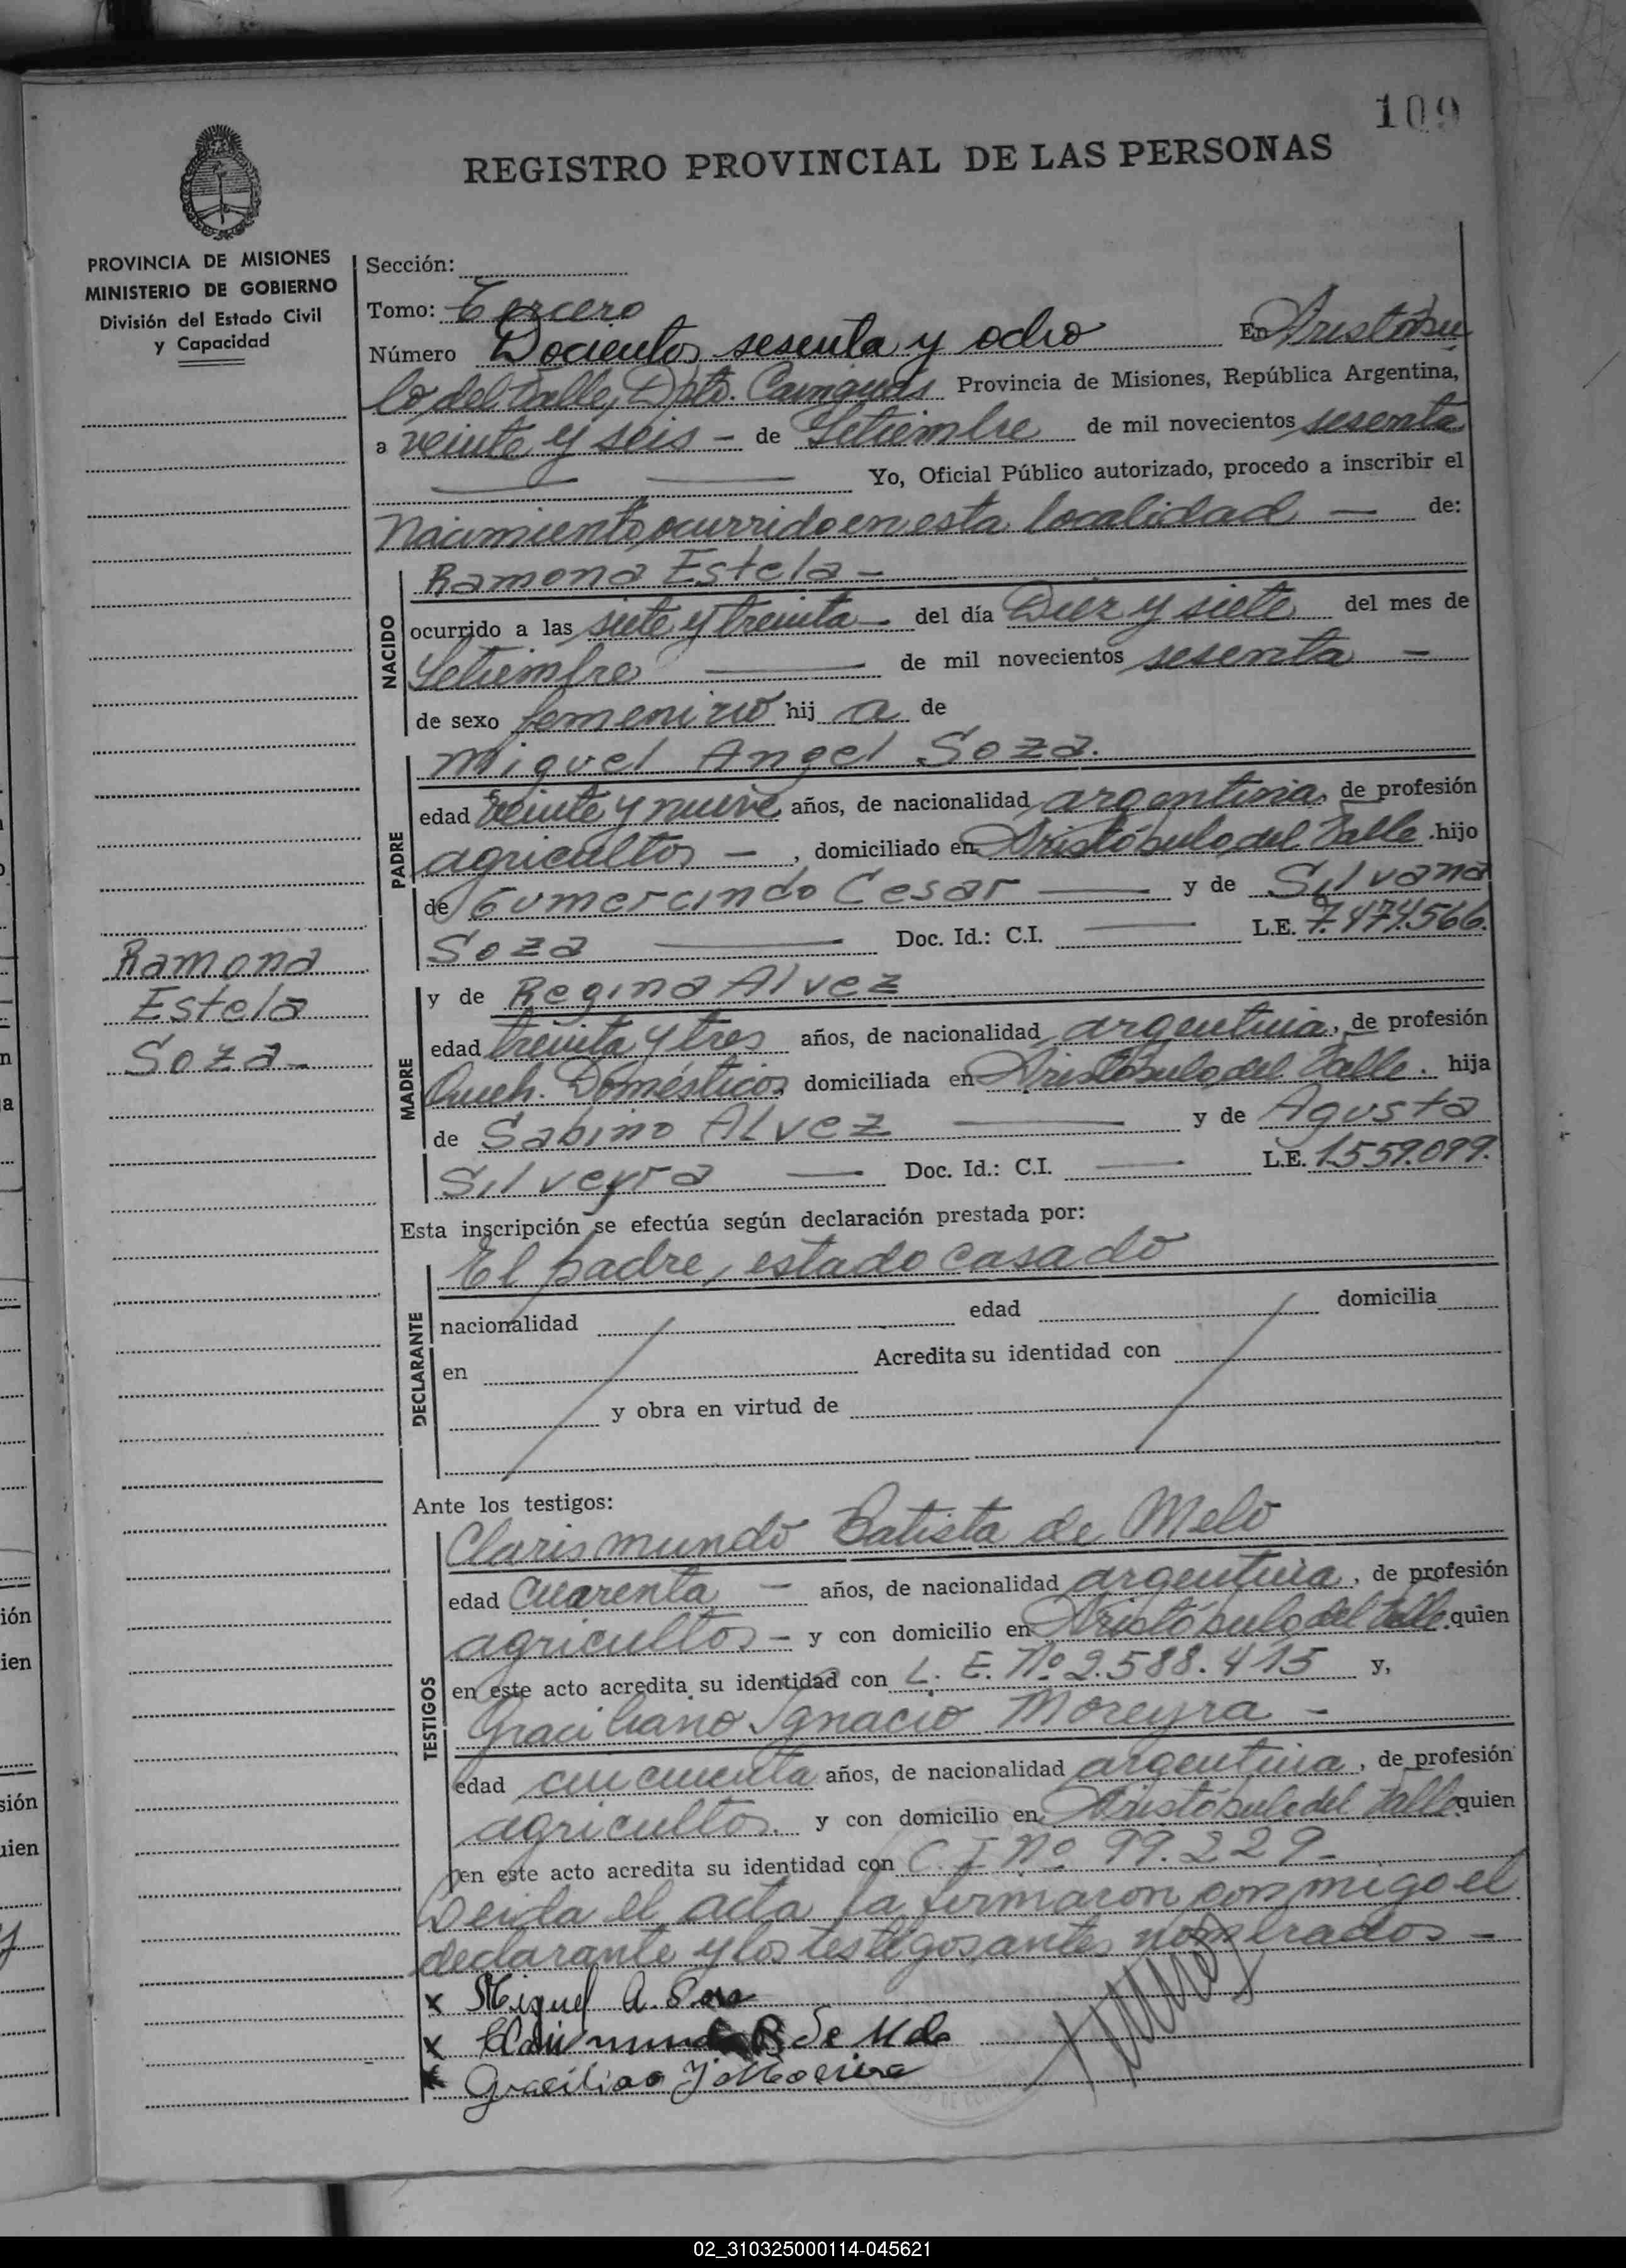 109
REGISTRO PROVINCIAL DE LAS PERSONAS
PROVINCIA DE MISIONES
MINISTERIO DE GOBIERNO
División del Estado Civil
y Capacidad
Ramona
Estela
Soza
Sección:
Tomo: Tercero
Número Docientos sesenta y ocho En Aristóbu
lo del Valle, Dpto. Cainguás Provincia de Misiones, República Argentina,
a veinte y seis - de Setiembre de mil novecientos sesenta
Yo, Oficial Público autorizado, procedo a inscribir el
Nacimiento, ocurrido en esta localidad — de:
NACIDO
Ramona Estela -
ocurrido a las siete y treinta - del día Diez y siete del mes de
Setiembre — de mil novecientos sesenta -
de sexo femenino hij a de
PADRE
Miguel Angel Soza.
edad veinte y nueve años, de nacionalidad argentina, de profesión
agricultor - , domiciliado en Aristóbulo del Valle. hijo
de Gumercindo Cesar — y de Silvana
Soza — Doc. Id.: C.I. — L.E. 7.474.566.
MADRE
y de Regina Alvez
edad treinta y tres años, de nacionalidad argentina, de profesión
Queh. Domésticos domiciliada en Aristóbulo del Valle. hija
de Sabino Alvez — y de Agusta
Silveyra — Doc. Id.: C.I. — L.E. 1.559.099.
Esta inscripción se efectúa según declaración prestada por:
DECLARANTE
El padre, estado casado
nacionalidad edad domicilia
en Acredita su identidad con
y obra en virtud de
Ante los testigos:
TESTIGOS
Clarismundo Batista de Melo
edad cuarenta - años, de nacionalidad argentina, de profesión
agricultor - y con domicilio en Aristóbulo del Valle. quien
en este acto acredita su identidad con L. E. Nº 2.588.415 y,
Graciliano Ignacio Moreyra -
edad cincuenta años, de nacionalidad argentina, de profesión
agricultor. y con domicilio en Aristóbulo del Valle quien
en este acto acredita su identidad con C. I Nº 99.229-
Leida el acta la firmaron conmigo el
declarante y los testigos antes nombrados -
x Miguel A. Soza
x de Melo
x
02_310325000114-045621